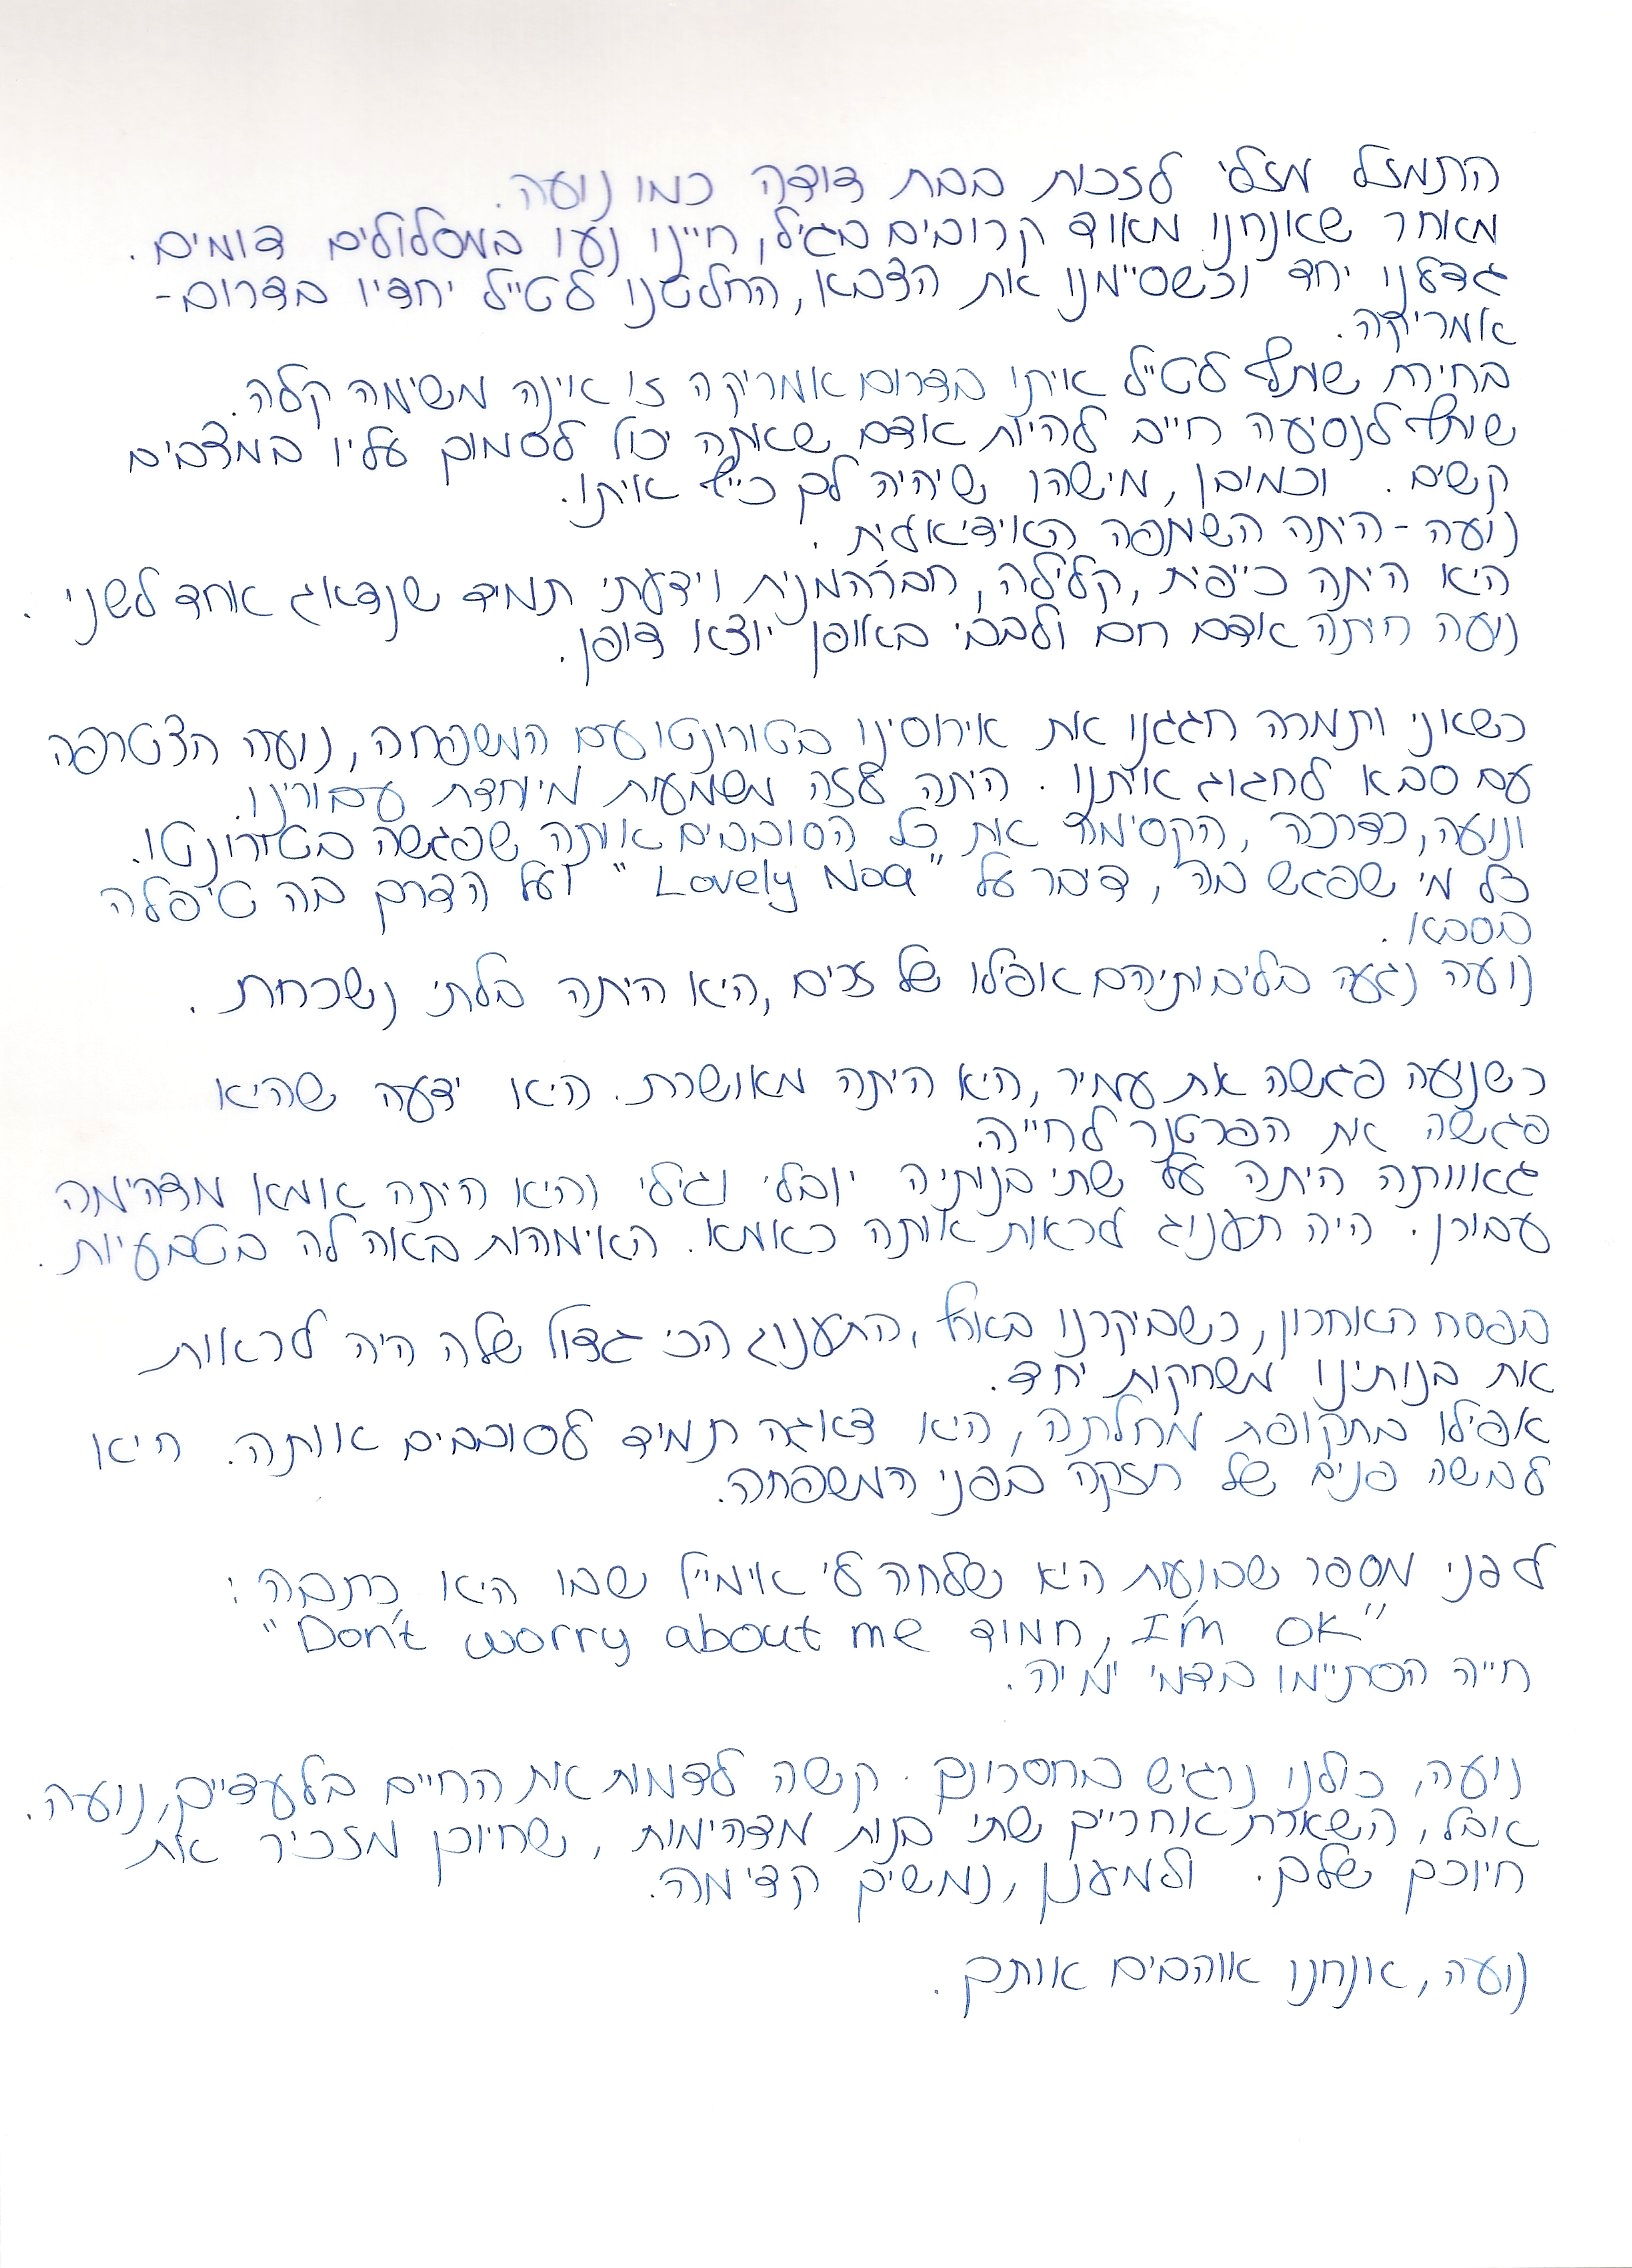 התמזל מזלי לזכות בבת דודה כמו נועה.
מאחר שאנחנו מאוד קרובים בגיל, חיינו נעו במסלולים דומים.
גדלנו יחד וכשסיימנו את הצבא, החלטנו לטייל יחדיו בדרום-
אמריקה.
בחירת שותף לטייל איתו בדרום אמריקה זו אינה משימה קלה.
שותף לנסיעה חייב להיות אדם שאתה יכול לסמוך עליו במצבים
קשים. וכמובן, מישהו שיהיה לך כייף איתו.
נועה - היתה השותפה האידיאלית.
היא היתה כייפית, קלילה, חברהמנית וידעתי תמיד שנדאג אחד לשני.
נועה היתה אדם חם ולבבי באופן יוצא דופן.

כשאני ותמרה חגגנו את אירוסינו בטורונטו עם המשפחה, נועה הצטרפה
עם סבא לחגוג איתנו. היתה לזה משמעות מיוחדת עבורינו.
ונועה, כדרכה, הקסימה את כל הסובבים אותה שפגשה בטורונטו.
כל מי שפגש בה, דיבר על "Lovely Noa" ועל הדרך בה טיפלה
בסבא.
נועה נגעה בליבותיהם אפילו של זרים, היא היתה בלתי נשכחת.

כשנועה פגשה את עמיר, היא היתה מאושרת. היא ידעה שהיא
פגשה את הפרטנר לחייה.
גאוותה היתה על שתי בנותיה יובלי וגילי והיא היתה אמא מדהימה
עבורן. היה תענוג לראות אותה כאמא. האימהות באה לה בטבעיות.

בפסח האחרון, כשביקרנו בארץ, התענוג הכי גדול שלה היה לראות
את בנותינו משחקות יחד.
אפילו בתקופת מחלתה, היא דאגה תמיד לסובבים אותה. היא
לבשה פנים של חזקה בפני המשפחה.

לפני מספר שבועות היא שלחה לי אימייל שבו היא כתבה:
"Don't worry about me חמוד, I'm OK"
חייה הסתיימו בדמי ימיה.

נועה, כולנו נרגיש בחסרונך. קשה לדמות את החיים בלעדייך, נועה.
אבל, השארת אחרייך שתי בנות מדהימות, שחיוכן מזכיר את
חיוכך שלך. ולמענן, נמשיך קדימה.

נועה, אנחנו אוהבים אותך.